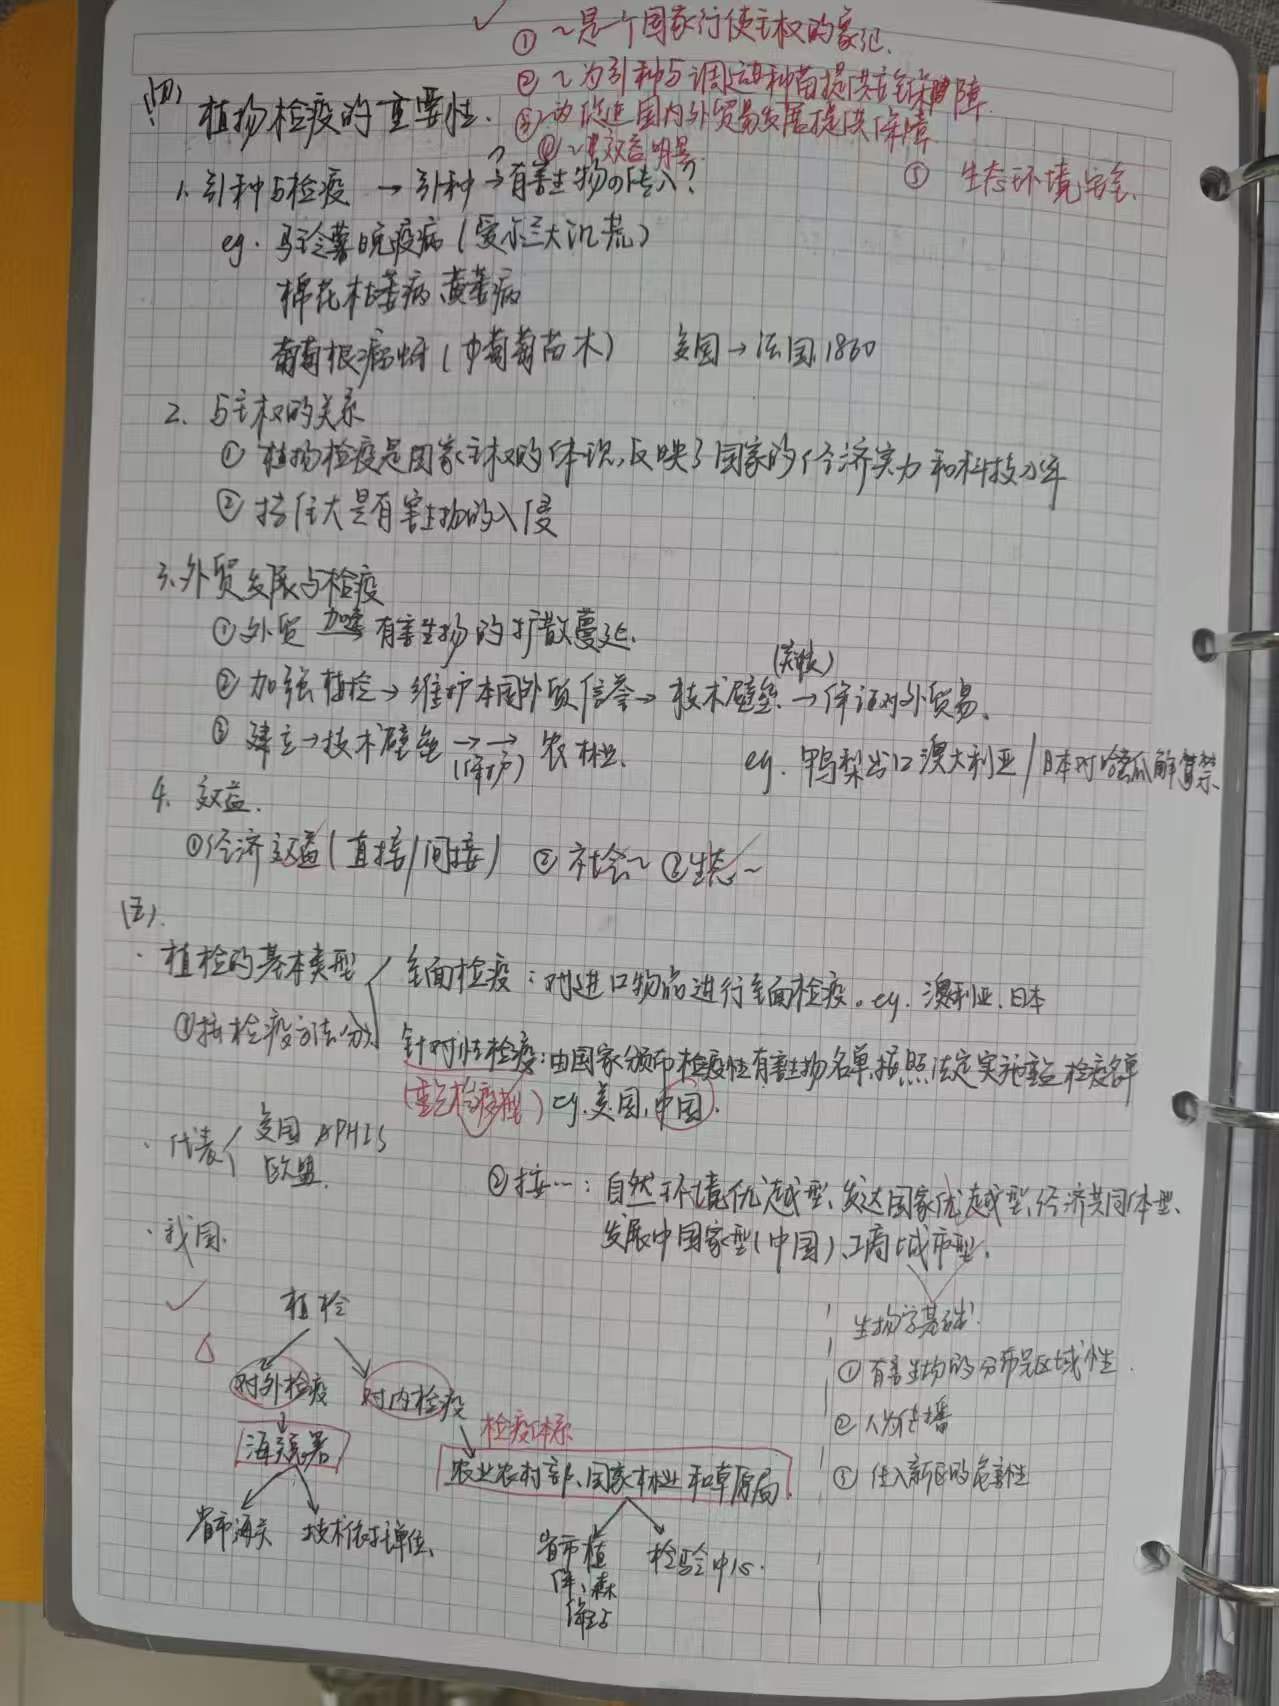 ① ~是一个国家行使主权的象征.
② ~为引种与调运种苗提供安全保障.
③ ~为促进国内外贸易发展提供保障
④ ~效益明显.
⑤ 生态环境安全.
(四) 植物检疫的重要性.
1. 引种与检疫 → 引种 → 有害生物的传入?
eg. 马铃薯晚疫病 (爱尔兰大饥荒)
棉花枯萎病 黄萎病
葡萄根瘤蚜 (由葡萄苗木) 美国 → 法国 1860
2. 与主权的关系
① 植物检疫是国家主权的体现, 反映了国家的经济实力和科技水平
② 挡住大是有害生物的入侵
3. 外贸发展与检疫
① 外贸 加速 有害生物的扩散蔓延.
② 加强植检 → 维护本国外贸信誉 → 技术壁垒 → 保证对外贸易.
③ 建立 → 技术壁垒 →→ (保护) 农林业. eg. 鸭梨出口澳大利亚 / 日本对哈密瓜解禁
4. 效益.
① 经济效益 (直接/间接) ② 社会~ ③ 生态~
(五).
· 植检的基本类型 全面检疫: 对进口物品进行全面检疫. eg. 澳利亚. 日本
① 按检疫方法分 针对性检疫: 由国家颁布检疫性有害生物名单, 按照法定实施重点检疫名单
(重点检疫) eg. 美国, 中国.
· 代表 美国 APHIS
欧盟.
② 按…: 自然环境优越型、发达国家优越型、经济共同体型、
发展中国家型 (中国)、工商城市型.
· 我国.
植检
对外检疫 对内检疫
海关总署
检疫体系
农业农村部、国家林业和草原局
省市海关 技术依托单位、
省市植
保、森
保站
检验中心.
生物学基础:
① 有害生物的分布呈区域性.
② 人为传播
③ 传入新区的危害性